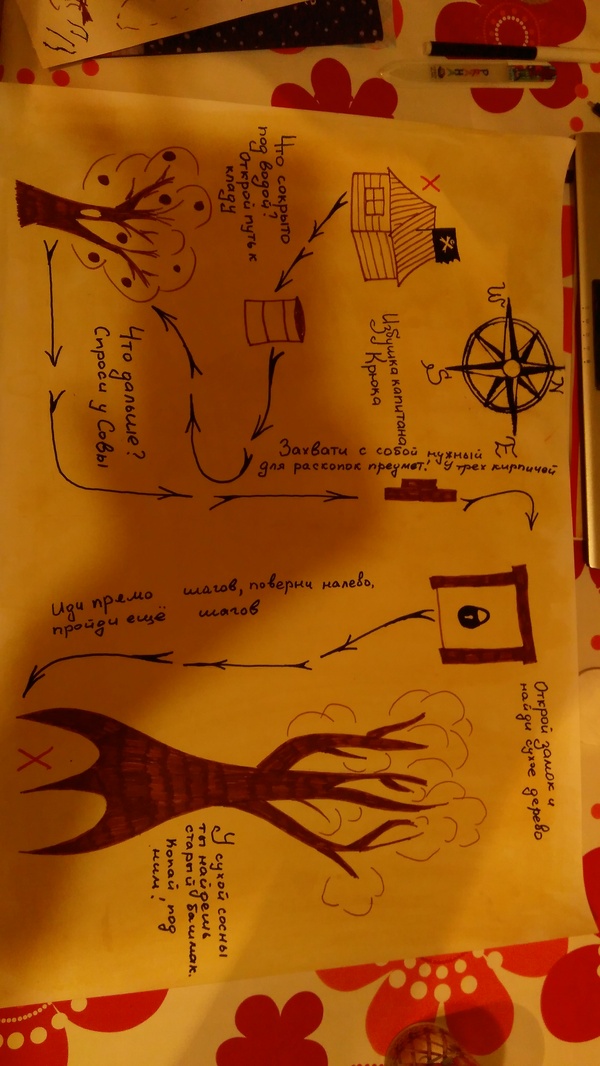 Что сокрыто
под водой?
Открой путь к
кладу
Избушка капитана
Крюка
W
N
S
E
Что дальше?
Спроси у Совы
Захвати с собой нужный
для раскопок предмет! У трех кирпичей
Иди прямо шагов, поверни налево,
пройди ещё шагов
Открой замок и
найди сухое дерево
У сухой сосны
ты найдешь
старый башмак.
Копай под
ним!